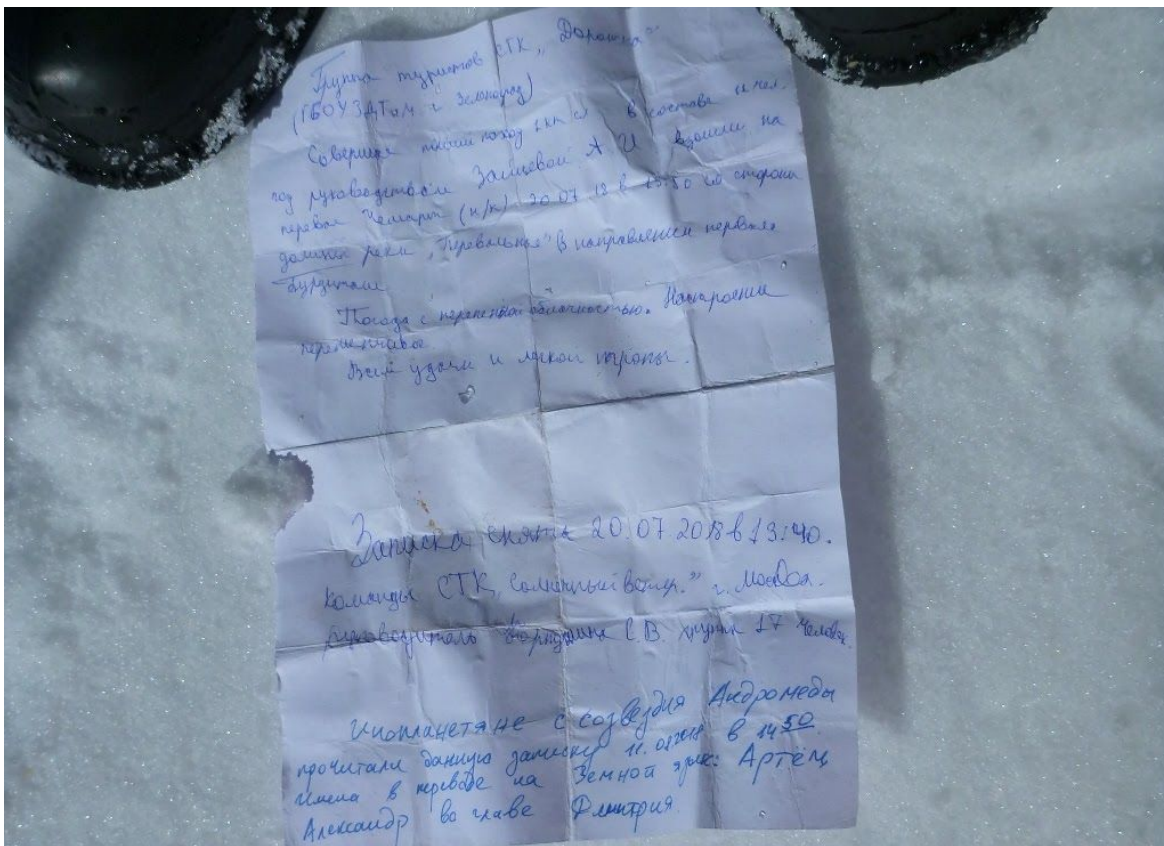 Группа туристов СТК „Дорожка"
(ГБОУЗДТДиМ г Зеленоград)
Совершая поход в составе чел.
под руководством Зайцевой А И взошли на
перевал (н/к) 20 07 18 в со стороны
долины реки „Перевальная" в направлении перевала
Бурунташ
Погода с переменной облачностью. Настроение
переменчивое.
Всем удачи и легкой тропы.
Записка снята 20.07.2018 в 13:40.
команды СТК „Солнечный ветер." г. Москва.
Руководитель С.В. группа 17 человек.
Инопланетяне с созвездия Андромеды
прочитали данную записку 2018 в 14 50.
Имена в переводе на Земной язык: Артём
Александр во главе Дмитрия.